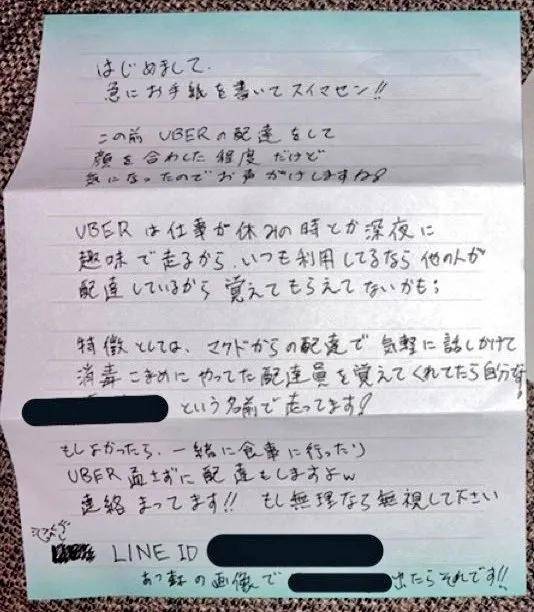 はじめまして。
急にお手紙を書いてスイマセン!!
この前 UBERの配達をして
顔を合わした程度だけど
気になったのでお声がけしますね
UBERは仕事が休みの時とか深夜に
趣味で走るから、いつも利用してるなら他の人が
配達しているから覚えてもらえてないかも;
特徴としては、マクドからの配達で気軽に話しかけて
消毒こまめにやってた配達員を覚えてくれてたら自分
という名前で走ってます!
もしよかったら、一緒に食事に行ったり
UBER 通さずに配達もしますよw
連絡まってます!! もし無理なら無視して下さい
LINE ID
の画像で 出たらそれです!!